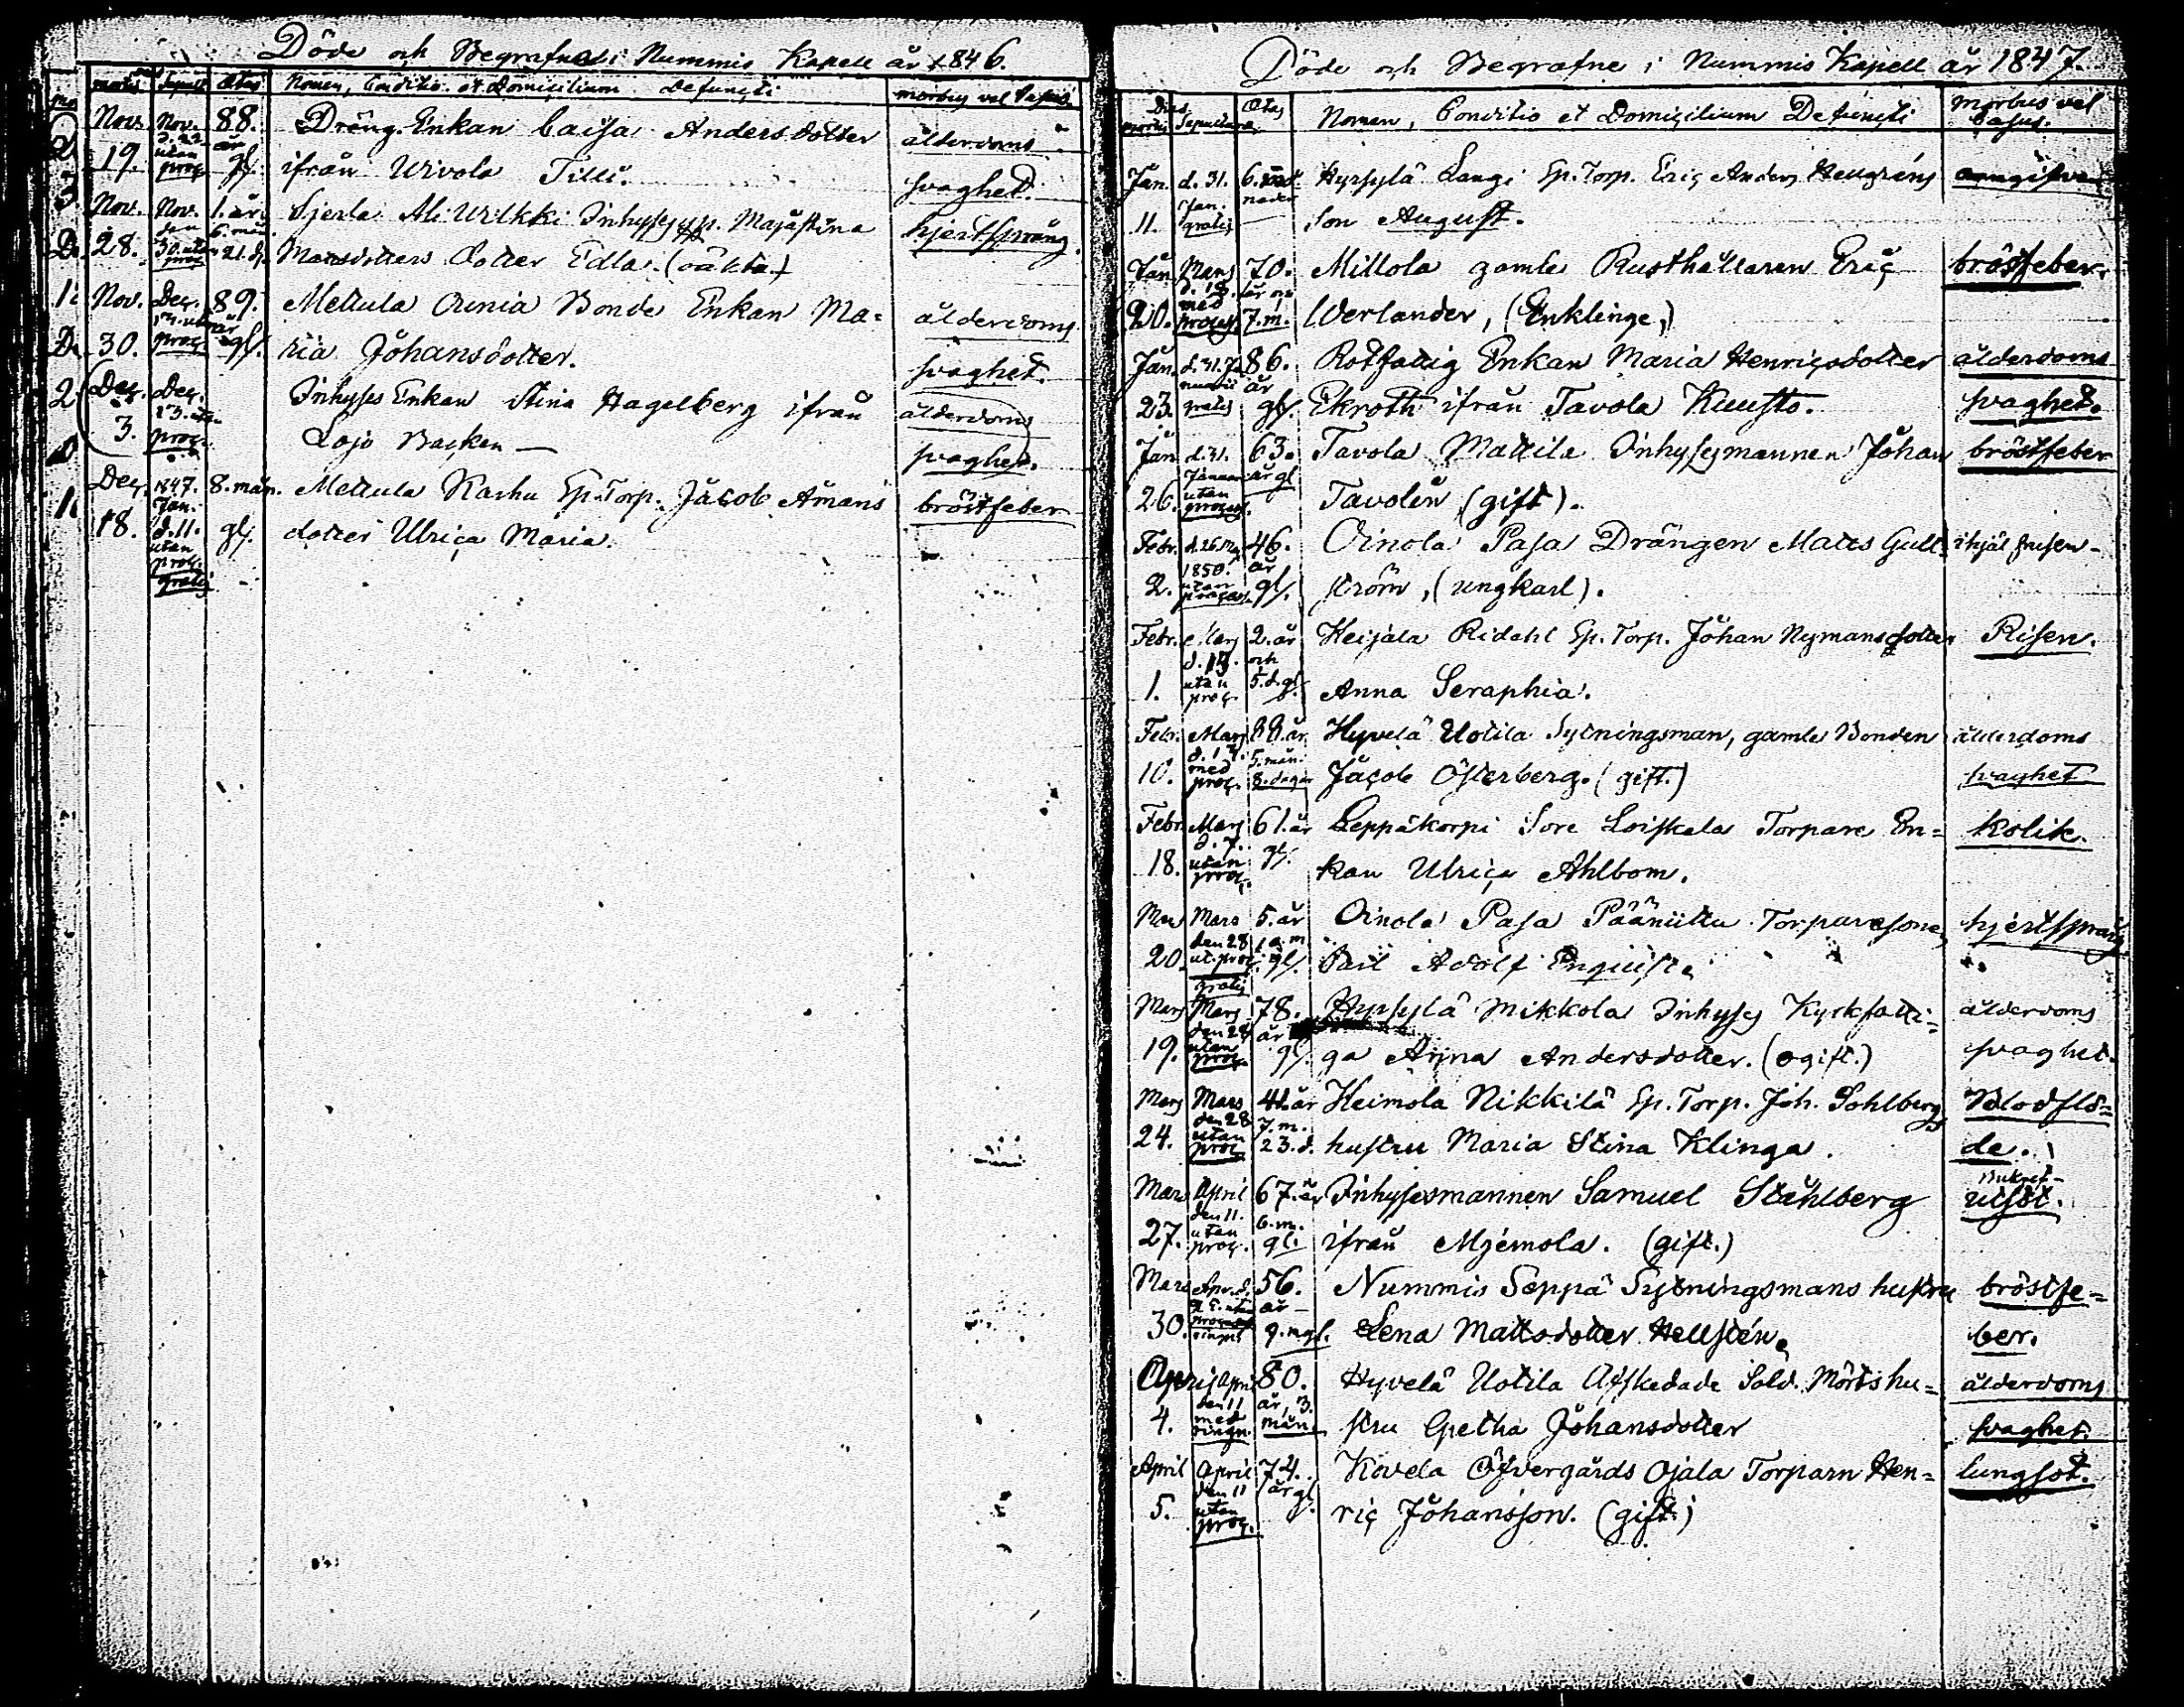 Döde och Begrafne i Nummis Kapell år 1846.
mortis Sepult Ætas Nomen, Conditio et Domicilium Defuncti morbus vel Casus
Nov. Nov. 88. Dräng Enkan Caisa Andersdotter ålderdoms
d. 22 år
19. utan proc. gl. ifrån Uivola Tilli. svaghet.
Nov. Nov. 1. år Sjerla Ali Uilkki Inhyses p. Majastina hjertsprång.
den 6. mån
28. 30. utan proc. 21. d. Matsdotters dotter Edla. (oäkta)
Nov. Dec. 89. Mettula Ounia Bonde Enkan Ma= ålderdoms
13. utan år
30. proc. gl. ria Johansdotter. svaghet.
Dec. Dec. Inhyses Enkan Stina Hagelberg ifrån ålderdoms
13. utan
3. proc. Lojo Backen — svaghet.
Dec. 1847. 8. mån. Mettula Karhu Sp. Torp. Jacob Åmans bröstfeber
Jan.
18. d. 11. gl. dotter Ulrica Maria.
utan
proc.
gratis
Döde och Begrafne i Nummis Kapell år 1847.
Dies Ætas Nomen, Conditio et Domicilium Defuncti morbus vel
mortis Sepulturæ Casus.
Jan. d. 31. 6. må- Hyrsylä Langi Sp. Torp. Eric Anders Hellgréns
Jan. nader
11. gratis son August.
Jan. Mars 70. Millola gamle Rusthållaren Eric bröstfeber.
d. 18. år och
20. med process 7. m. Werlander, (Enklinge,)
Jan. d. 31. Ja 86. Rotfattig Enkan Maria Henricsdotter ålderdoms
nuarii år
23. gratis gl. Ekroth ifrån Tavola Kuusto. svaghet.
Jan d. 31. 63. Tavola Mattila Inhysesmannen Johan bröstfeber
Januari år gl
26. utan process. Tavolin (gift).
Febr. d. 26. Maj 46. Oinola Pasa Drängen Matts Gull- ihjäl frusen.
1850. år
2. utan process. gl. ström, (ungkarl).
Febr. Mars 2. år Heijala Ridahl Sp. Torp. Johan Nymans dotter Risen.
d. 17. och
1. utan proc. 5. d. gl. Anna Seraphia.
Febr. Mars 88. år Hyvelä Uotila Sytningsman, gamle Bonden ålderdoms
d. 17. 5. mån.
10. med proc. 8. dagar Jacob Österberg. (gift.) svaghet
Febr. Mars 61. år Leppäkorpi Sore Loiskala Torpare En= kolik.
d. 7.
18. utan proc. gl. kan Ulrica Ahlbom.
Mars Mars 5. år Oinola Pasa Pääniittu Torparesonen hjertsprång
den 28 1 m
20. ut. proc. gl. Carl Adolf Enquist.
gratis
Mars Mars 78. Hyrsylä Mikkola Inhyses Kyrkfatti= ålderdoms
den 28 år
19. utan proc. gl. ga Anna Andersdotter. (ogift.) svaghet.
Mars Mars 42. år Heimola Nikkilä Sp. Torp. Joh. Sohlbergs Blodflö=
den 28 7. m.
24. utan proc. 23. d. hustru Maria Stina Klinga. de.
Mars April 67. år Inhysesmannen Samuel Ståhlberg utsot.
den 11. 6. m.
27. utan proc. gl. ifrån Mjemola. (gift.)
Mars Apr. d. 56. Nummis Seppä Sytningsmans hustru bröstfe=
år
30. 9. m gl. Lena Mattsdotter Hellstén. ber.
April April 80. Hyvelä Uotila Afskedade Sold. Mörts hu= ålderdoms
den 11 år, 3.
4. med ringn. mån. stru Gretha Johansdotter svaghet.
April April 74. Kovela Öfvergårds Ojala Torparn Hen= lungsot.
den 11 år gl.
5. utan proc. ric Johansson. (gift)